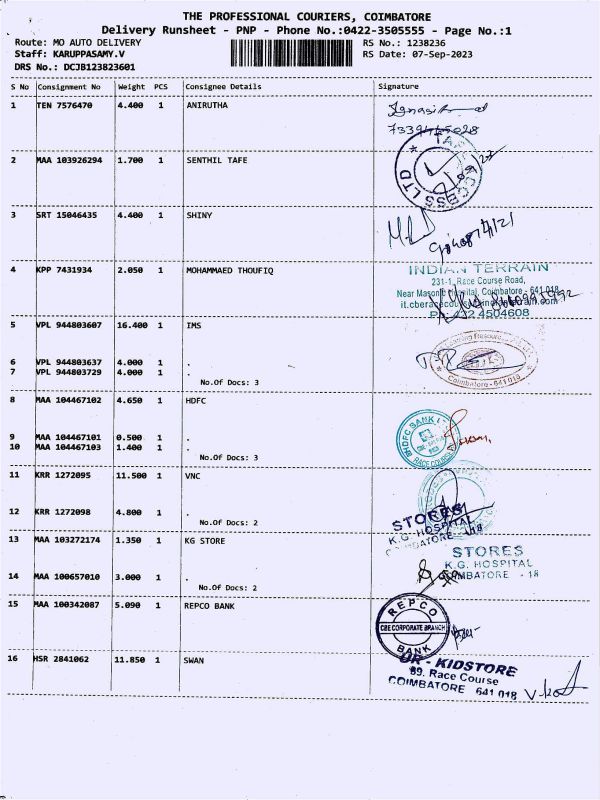 THE PROFESSIONAL COURIERS, COIMBATORE
Delivery Runsheet - PNP - Phone No.:0422-3505555 - Page No.:1
Route: MO AUTO DELIVERY RS No.: 1238236
Staff: KARUPPASAMY.V RS Date: 07-Sep-2023
DRS No.: DCJB123823601
S No Consignment No Weight PCS Consignee Details Signature
1 TEN 7576470 4.400 1 ANIRUTHA
2 MAA 103926294 1.700 1 SENTHIL TAFE
TAFE ACCESS LTD
3 SRT 15046435 4.400 1 SHINY
4 KPP 7431934 2.050 1 MOHAMMAED THOUFIQ
INDIAN TERRAIN
231-1, Race Course Road,
Near Masonic Hospital, Coimbatore - 641 018
5 VPL 944803607 16.400 1 IMS
6 VPL 944803637 4.000 1 .
7 VPL 944803729 4.000 1 .
No.Of Docs: 3
Coimbatore - 641 018
8 MAA 104467102 4.650 1 HDFC
HDFC BANK
RACE COURSE
9 MAA 104467101 0.500 1 .
10 MAA 104467103 1.400 1 .
No.Of Docs: 3
11 KRR 1272095 11.500 1 VNC
12 KRR 1272098 4.800 1 .
No.Of Docs: 2
STORES
K.G. HOSPITAL
13 MAA 103272174 1.350 1 KG STORE
STORES
K.G. HOSPITAL
COIMBATORE - 18
14 MAA 100657010 3.000 1 .
No.Of Docs: 2
15 MAA 100342087 5.090 1 REPCO BANK
REPCO
CBE CORPORATE BRANCH
BANK
16 HSR 2841062 11.850 1 SWAN
KIDSTORE
89, Race Course
COIMBATORE 641 018